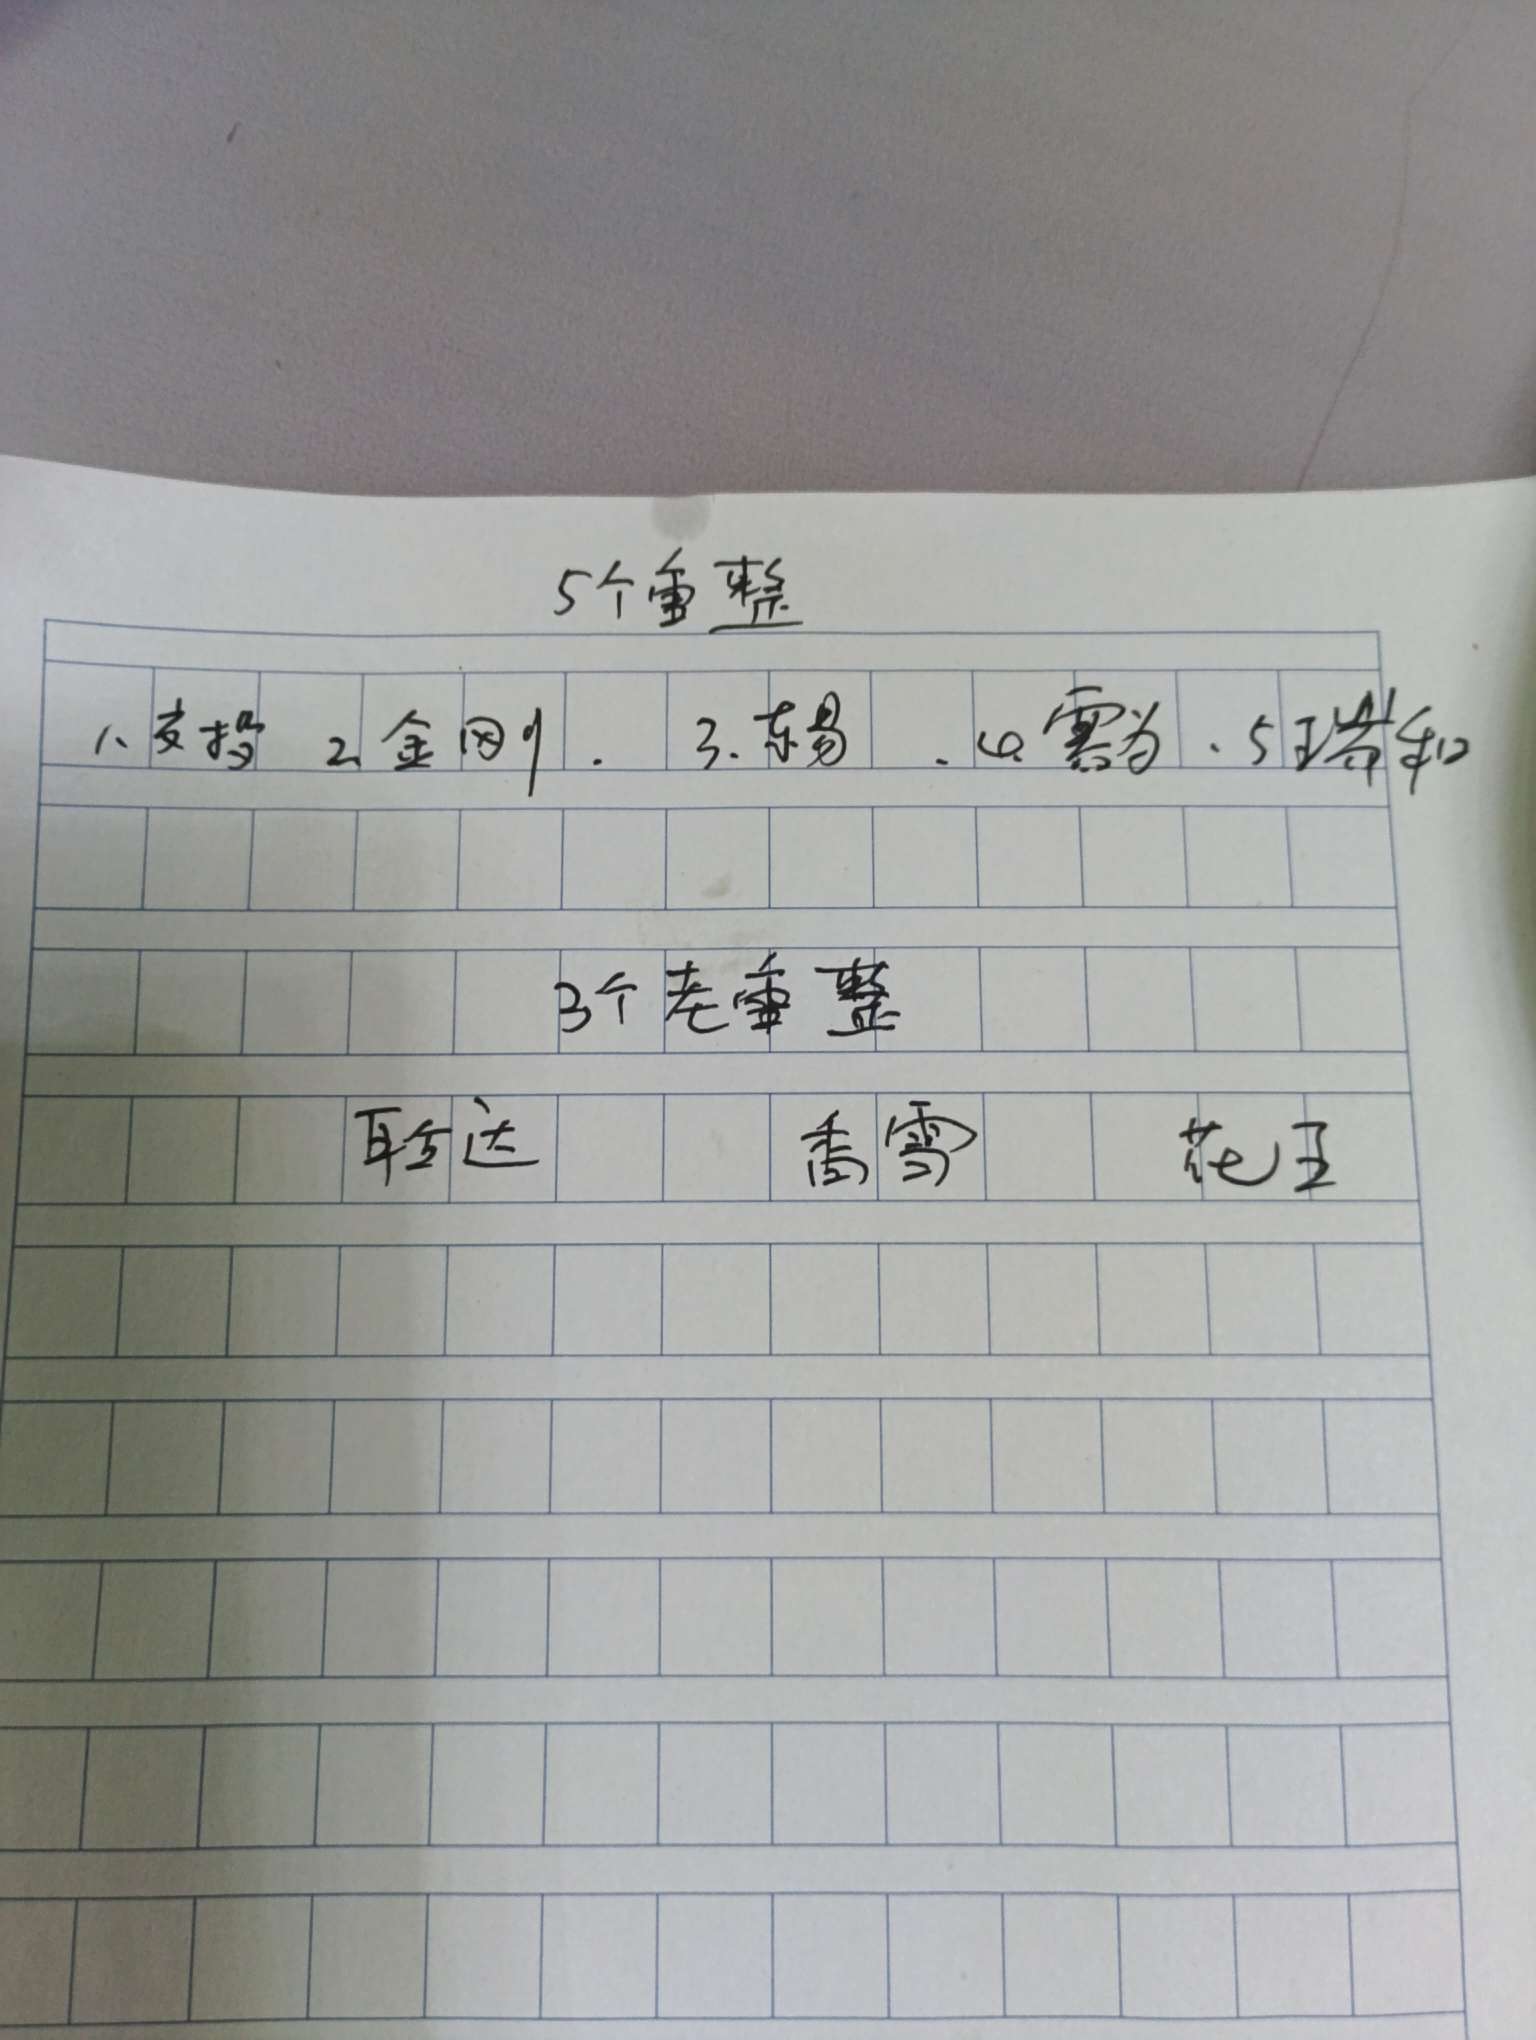 5个重整
1、支投 2、金刚. 3.东易. 4.震为. 5瑞和
3个老重整
聆达 香雪 花王